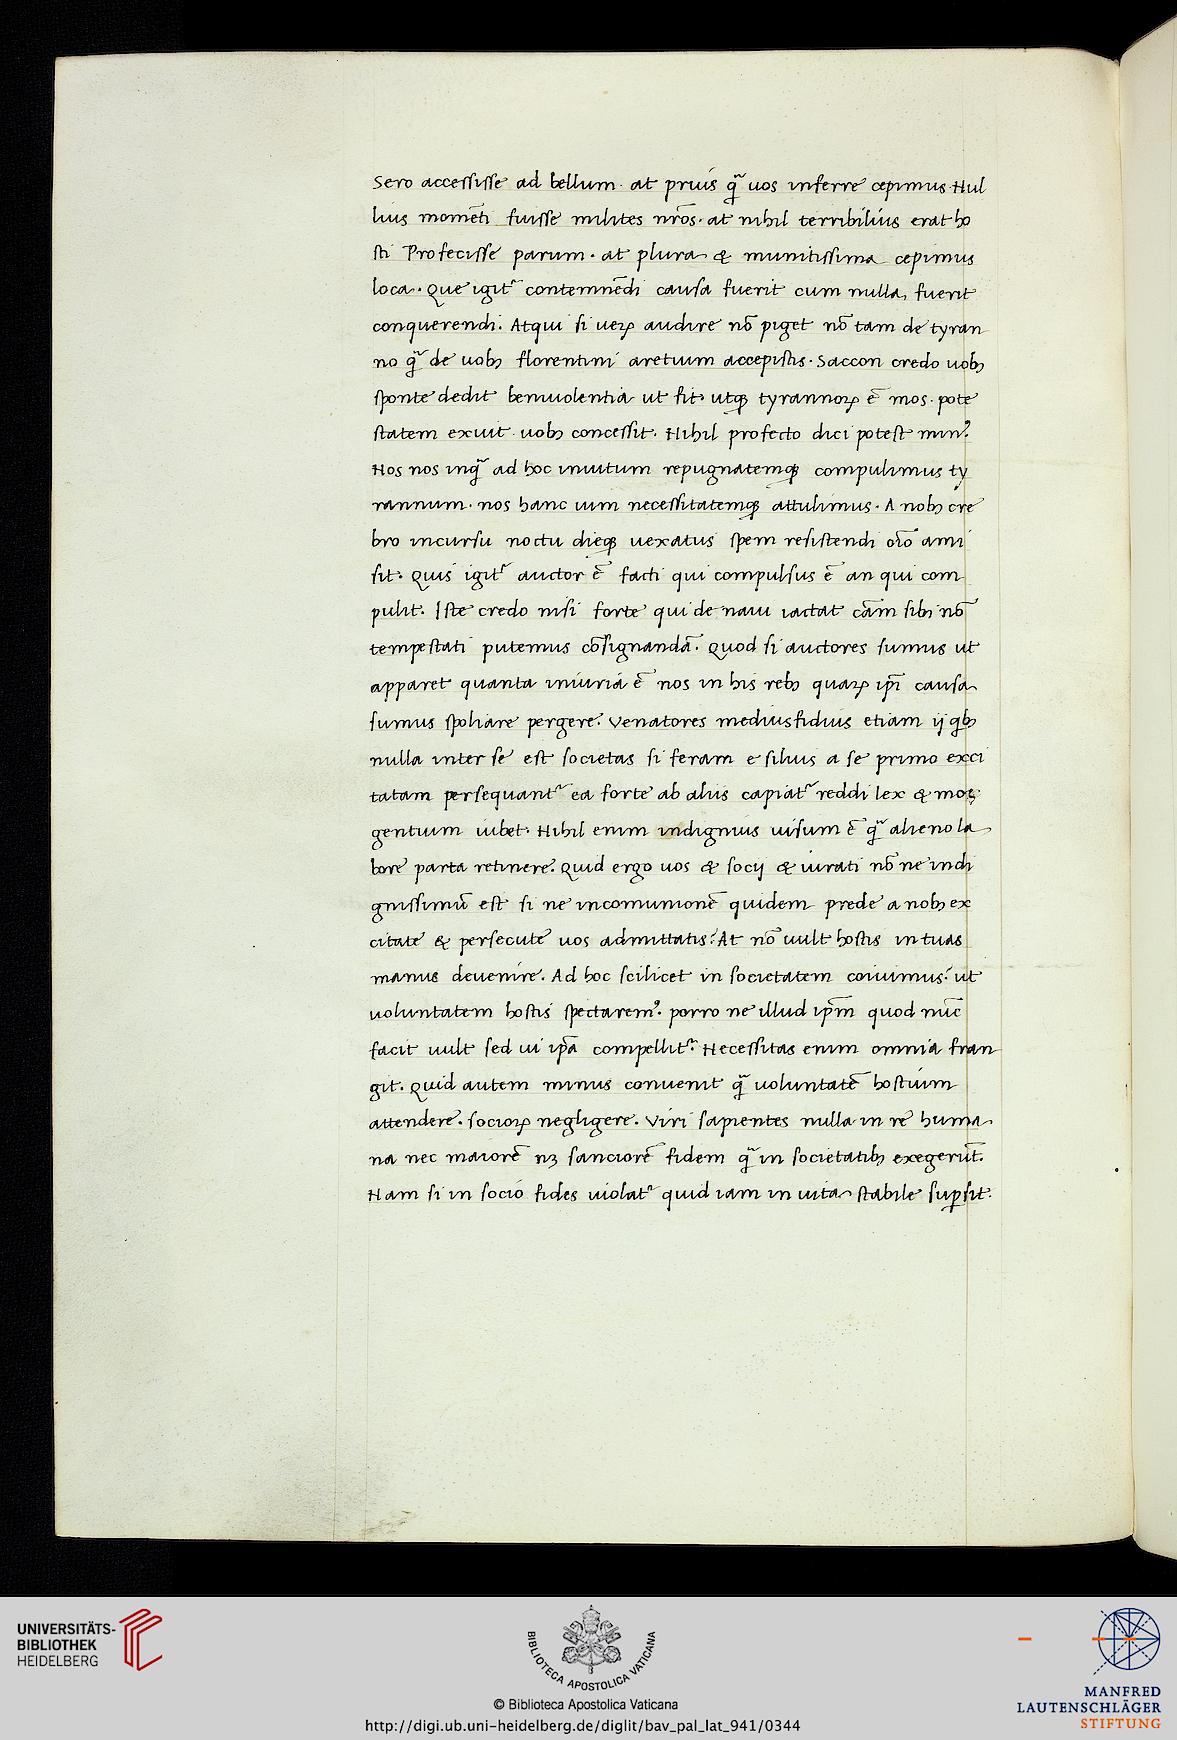 Sero accessisse ad bellum · at prius q̃ uos inferre cepimus · Nul
lius momẽti fuisse milites nr̃os · at nihil terribilius erat ho
sti Profecisse parum · at plura & munitissima cepimus
loca · Que igit᷑ contemnẽdi causa fuerit cum nulla fuerit
conquerendi. Atqui si ueꝝ audire nõ piget nõ tam de tyran
no q̃ de uobꝫ florentini aretium accepistis · Saccon credo uobꝫ
sponte dedit beniuolentia ut fit utqꝫ tyrannoꝝ ẽ mos · pote
statem exuit · uobꝫ concessit · Nihil profecto dici potest minꝰ.
Nos nos inq̃ ad hoc inuitum repugnatemqꝫ compulimus ty
rannum · nos hanc uim necessitatemqꝫ attulimus · A nobꝫ cre
bro incursu noctu dieqꝫ uexatus spem resistendi oĩo ami
sit · Quis igit᷑ auctor ẽ facti qui compulsus ẽ an qui com
pulit · Iste credo nisi forte qui de naui iactat cãm sibi nõ
tempestati putemus cõsignandã · Quod si auctores sumus ut
apparet quanta iniuria ẽ nos in his rebꝫ quaꝝ ip̃i causa
sumus spoliare pergere? Venatores mediusfidius etiam ij qbꝫ
nulla inter se est societas si feram e siluis a se primo exci
tatam persequant᷑ ea forte ab aliis capiat᷑ reddi lex & mos
gentium iubet · Nihil enim indignius uisum ẽ q̃ alieno la
bore parta retinere. Quid ergo uos & socij & iurati nõne indi
gnissimũ est si ne incomunionẽ quidem prede a nobꝫ ex
citate & persecute uos admittatis? At nõ uult hostis in tuas
manus deuenire. Ad hoc scilicet in societatem coiuimus? ut
uoluntatem hostis spectaremꝰ. porro ne illud ip̃m quod nũc
facit uult sed ui ip̃a compellit᷑. Necessitas enim omnia fran
git. Quid autem minus conuenit q̃ uoluntatẽ hostium
attendere. socioꝝ negligere. Viri sapientes nulla in re huma
na nec maiorẽ nꝫ sanctiorẽ fidem q̃ in societatibꝫ exegerũt.
Nam si in socio fides uiolat᷑ quid iam in uita stabile suꝑsit.
UNIVERSITÄTS-
BIBLIOTHEK
HEIDELBERG
BIBLIOTECA APOSTOLICA VATICANA
© Biblioteca Apostolica Vaticana
http://digi.ub.uni-heidelberg.de/diglit/bav_pal_lat_941/0344
MANFRED
LAUTENSCHLÄGER
STIFTUNG